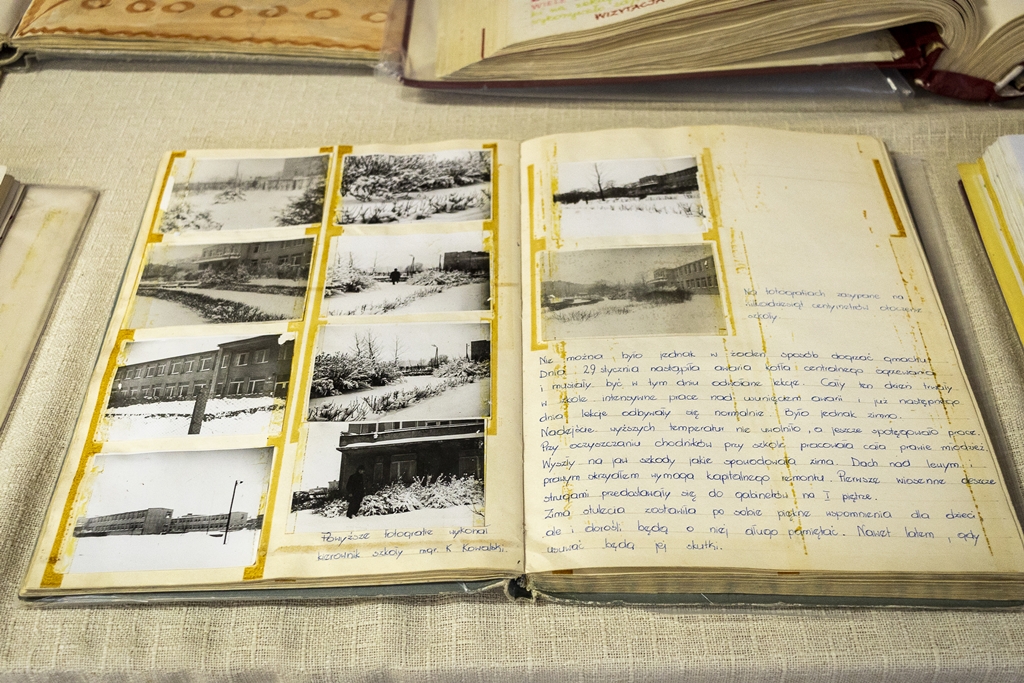 WIZYTACJA
Powyższe fotografie wykonał
kierownik szkoły mgr. K Kowalski.
Na fotografiach zasypane na
kilkadziesiąt centymetrów otoczenie
szkoły.
Nie można było jednak w żaden sposób dogrzać gmachu.
Dnia 29 stycznia nastąpiła awaria kotła centralnego ogrzewania
i musiały być w tym dniu odwołane lekcje. Cały ten dzień trwały
w szkole intensywne prace nad usunięciem awarii i już następnego
dnia lekcje odbywały się normalnie. Było jednak zimno.
Nadejście wyższych temperatur nie uwolniło, a jeszcze spotęgowało prace.
Przy oczyszczaniu chodników przy szkole pracowała cała prawie młodzież.
Wyszły na jaw szkody jakie spowodowała zima. Dach nad lewym i
prawym skrzydłem wymaga kapitalnego remontu. Pierwsze wiosenne deszcze
strugami przedostawały się do gabinetów na I piętrze.
Zima stulecia zostawiła po sobie piękne wspomnienia dla dzieci
ale i dorośli będą o niej długo pamiętać. Nawet latem, gdy
usuwać będą jej skutki.